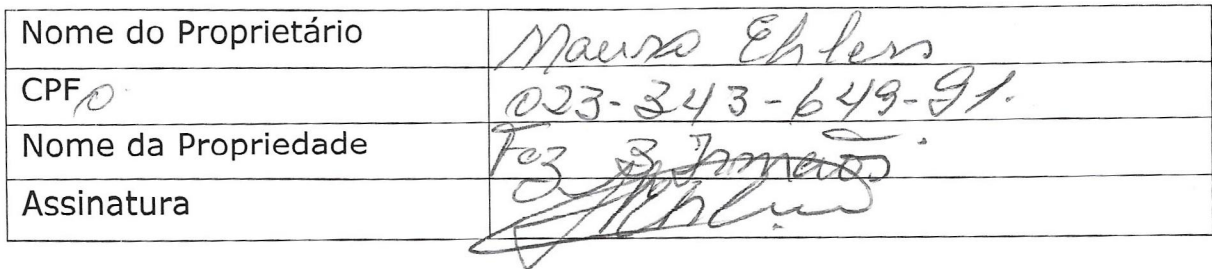 Nome do Proprietário Mauro Ehlers
CPF 023-343-649-91.
Nome da Propriedade Faz 3 Irmãos.
Assinatura